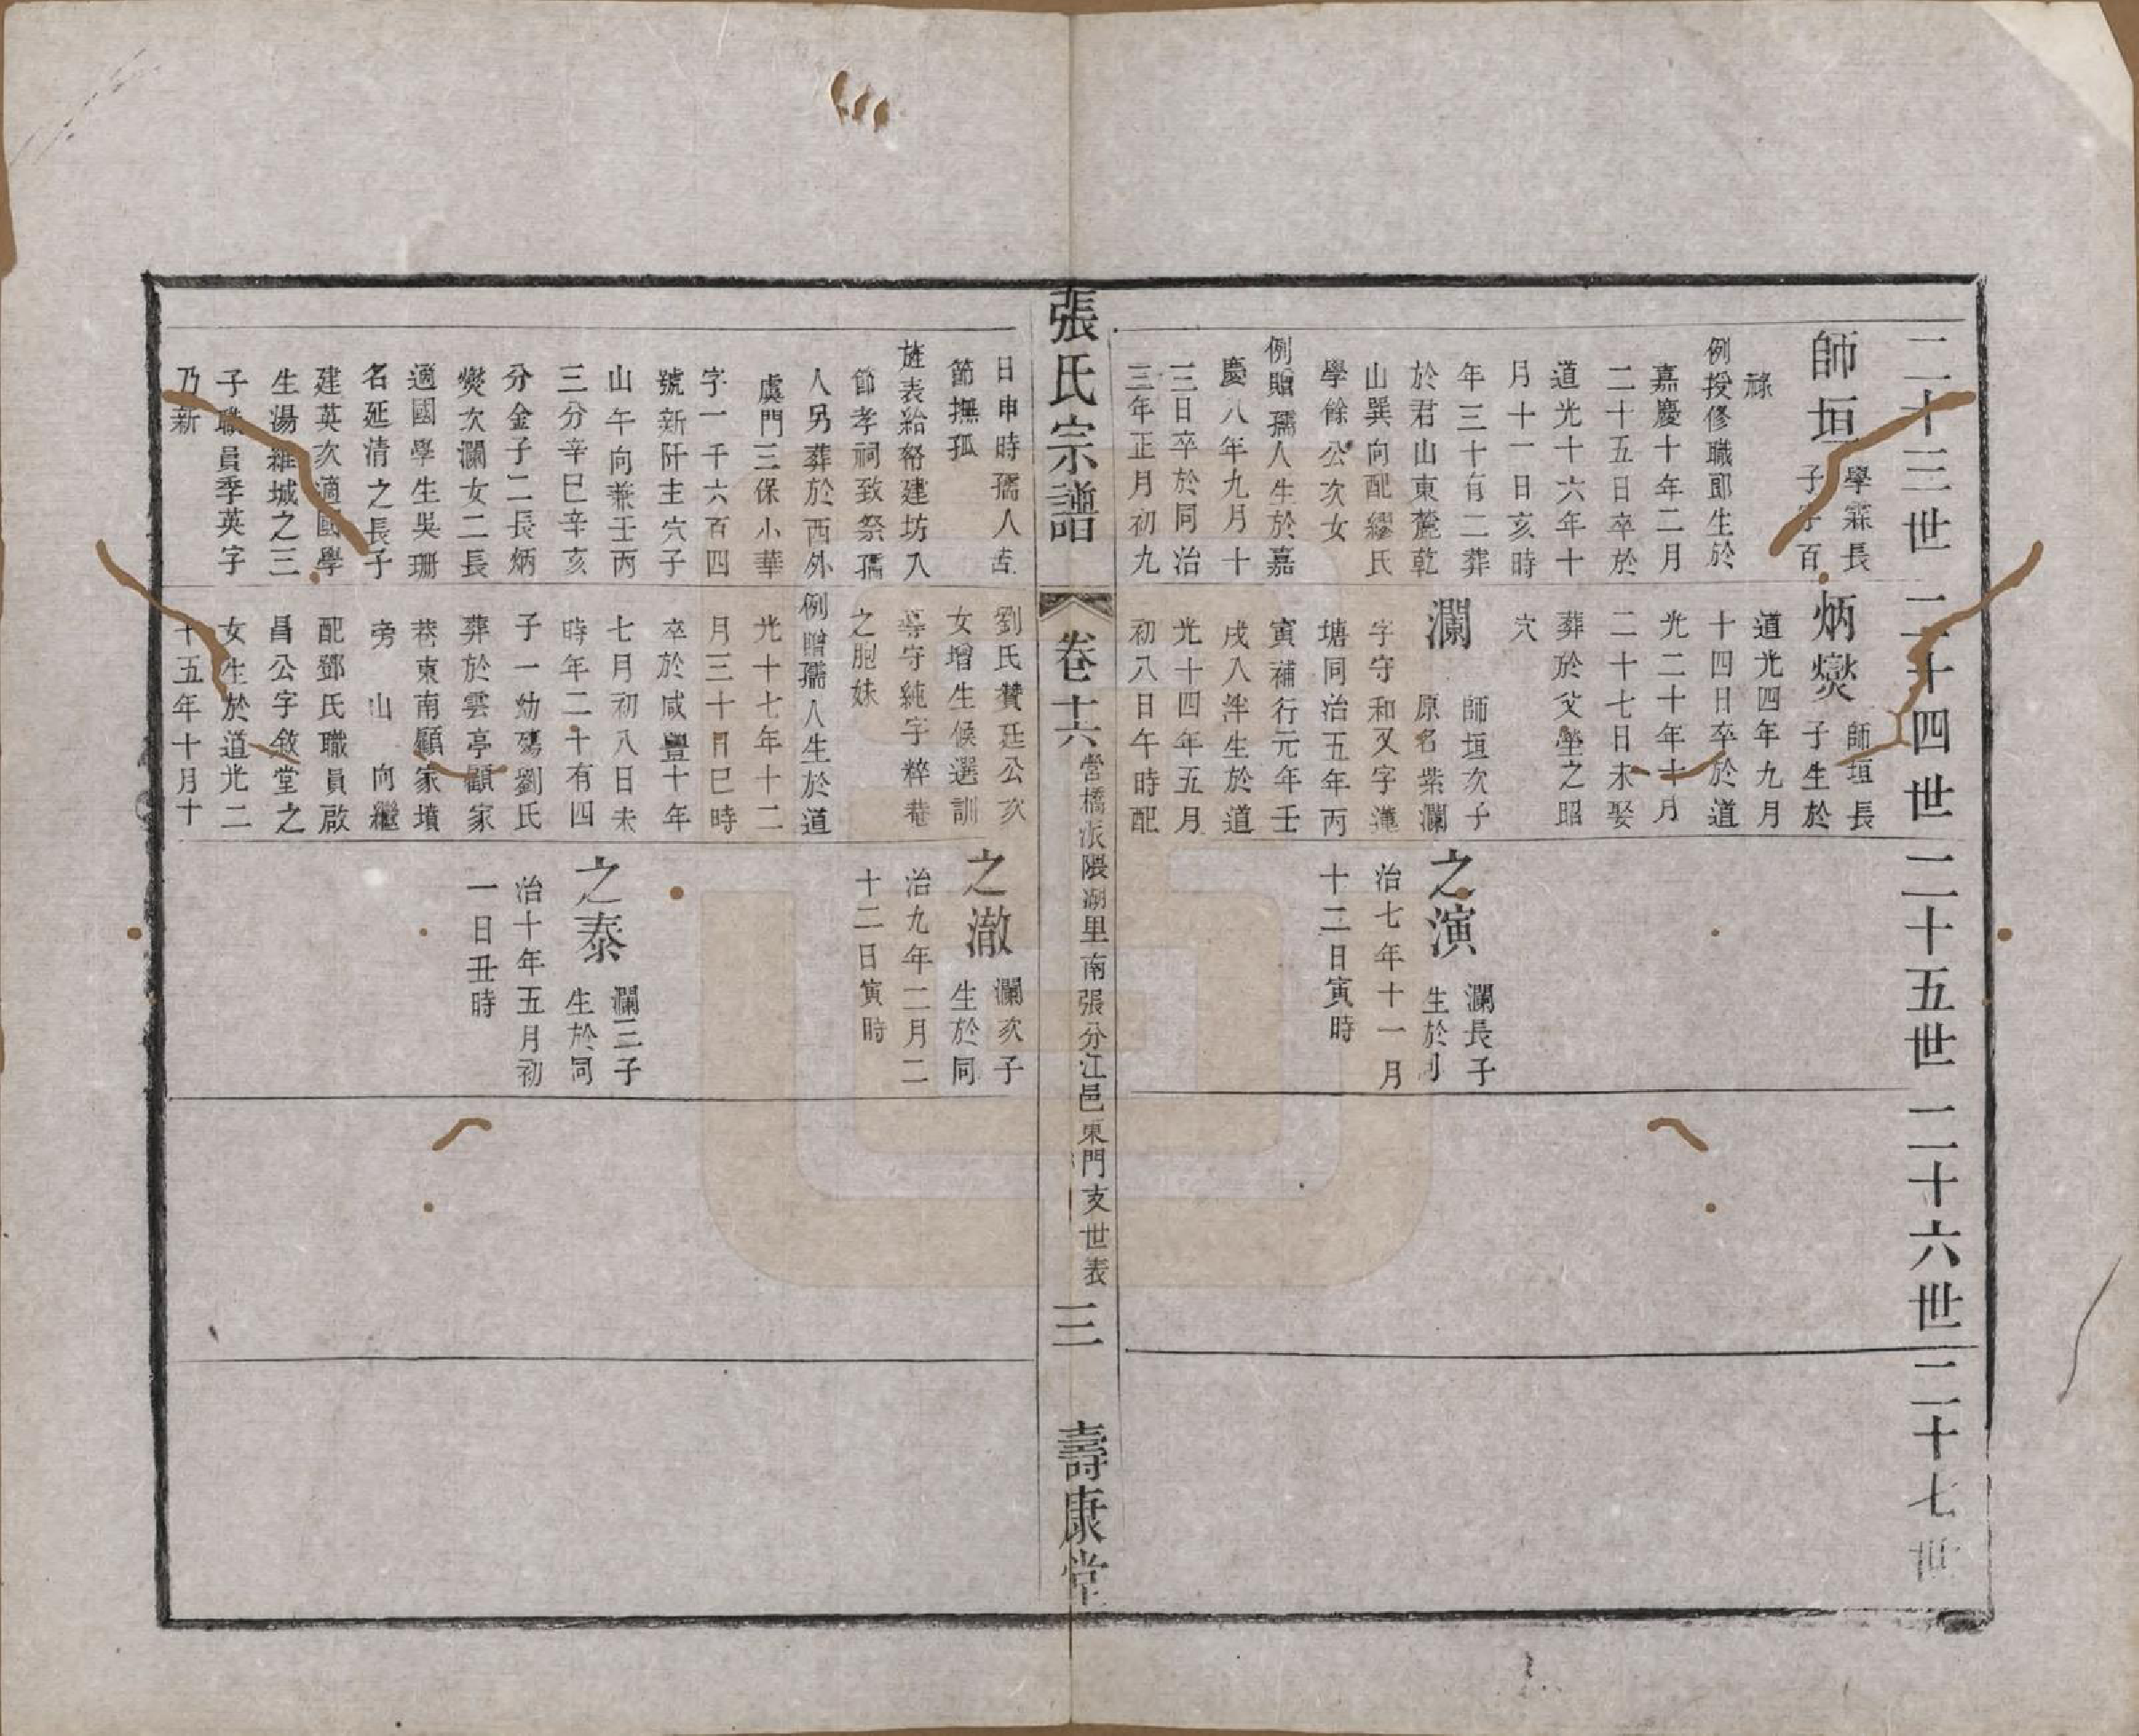 二十三世
師垣
學霖長
子字百
祿
例授修職郎生於
嘉慶十年二月
二十五日卒於
道光十六年十
月十一日亥時
年三十有二葬
於君山東麓乾
山巽向配繆氏
學餘公次女
例贈孺人生於嘉
慶八年九月十
三日卒於同治
三年正月初九
日申時孺人苦
節撫孤
旌表給帑建坊入
節孝祠致祭孺
人另葬於西外
虞門三保小華
字一千六百四
號新阡主穴子
山午向兼壬丙
三分辛巳辛亥
分金子二長炳
爕次瀾女二長
適國學生吳珊
名延清之長子
建英次適國學
生湯維城之三
子職員季英字
乃新
二十四世
炳爕
師垣長
子生於
道光四年九月
十四日卒於道
光二十年十月
二十七日未娶
葬於父塋之昭
穴
瀾
師垣次子
原名紫瀾
字守和又字蓮
塘同治五年丙
寅補行元年壬
戌入泮生於道
光十四年五月
初八日午時配
劉氏贊廷公亥
女增生候選訓
導守純字粹菴
之胞妹
例贈孺人生於道
光十七年十二
月三十日巳時
卒於咸豐十年
七月初八日未
時年二十有四
子一幼殤劉氏
葬於雲亭顧家
巷東南顧家墳
旁 山 向繼
配鄧氏職員啟
昌公字敘堂之
女生於道光二
十五年十月十
二十五世
之演
瀾長子
生於同
治七年十一月
十二日寅時
之澈
瀾次子
生於同
治九年二月二
十二日寅時
之泰
瀾三子
生於同
治十年五月初
一日丑時
二十六世
二十七世
張氏宗譜
卷十六
當橋派隈湖里南張分江邑東門支世表
三
壽康堂